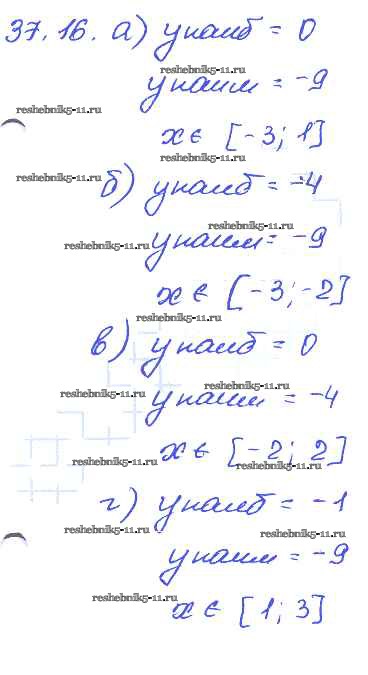 37.16. а) y наиб = 0
reshebnik5-11.ru
y наим = -9
reshebnik5-11.ru
x ∈ [-3; 1]
reshebnik5-11.ru
reshebnik5-11.ru
б) y наиб = -4
reshebnik5-11.ru
y наим = -9
reshebnik5-11.ru
x ∈ [-3; -2]
reshebnik5-11.ru
в) y наиб = 0
reshebnik5-11.ru
reshebnik5-11.ru
y наим = -4
x ∈ [-2; 2]
reshebnik5-11.ru
reshebnik5-11.ru
г) y наиб = -1
reshebnik5-11.ru
reshebnik5-11.ru
y наим = -9
reshebnik5-11.ru
x ∈ [1; 3]